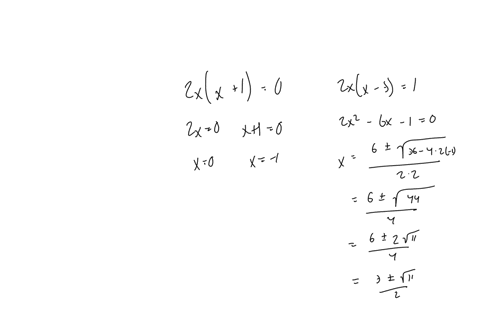 2x(x+1)=0
2x=0 x+1=0
x=0 x=-1
2x(x-3)=1
2x² - 6x - 1 = 0
x = (6 ± √(36-4·2(-1)))/(2·2)
= (6 ± √44)/4
= (6 ± 2√11)/4
= (3 ± √11)/2